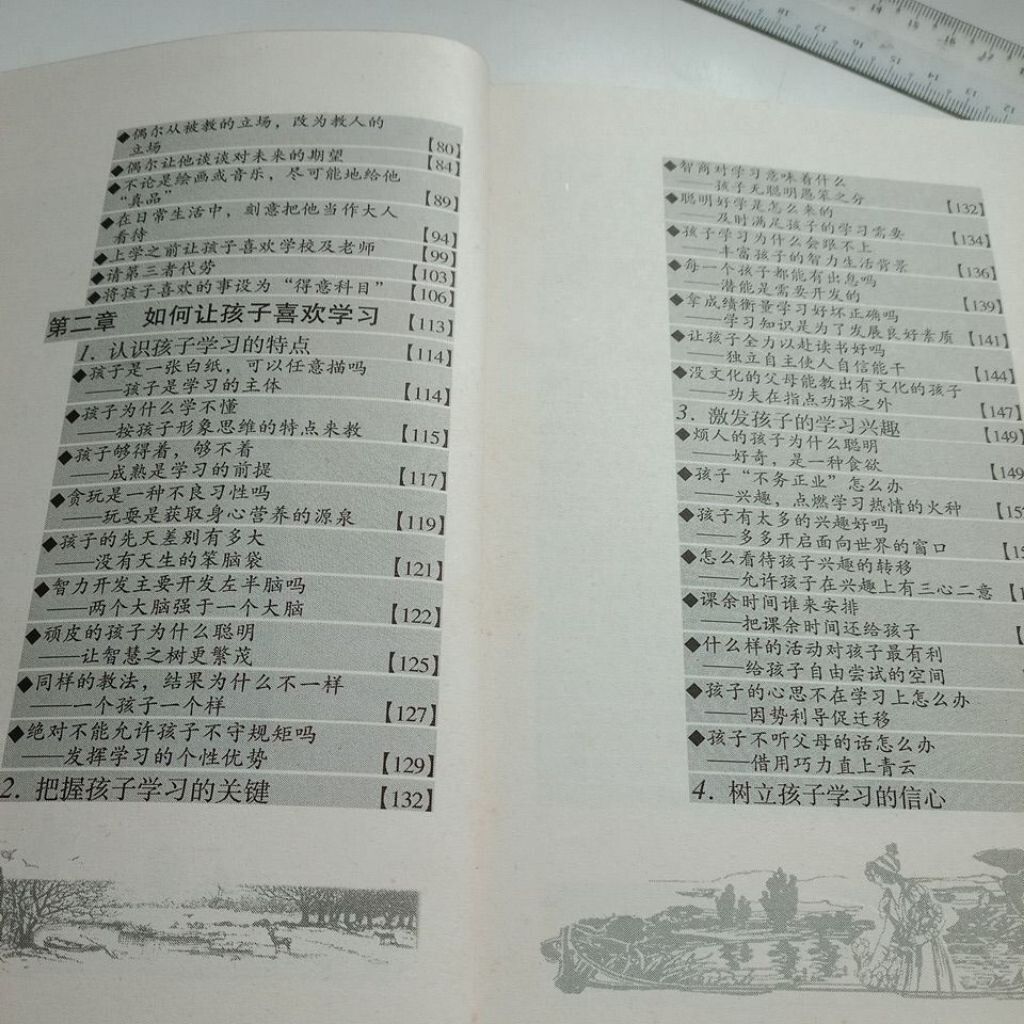 ◆偶尔从被教的立场，改为教人的
立场 【80】
◆偶尔让他谈谈对未来的期望 【84】
◆不论是绘画或音乐，尽可能地给他
“真品” 【89】
◆在日常生活中，刻意把他当作大人
看待 【94】
◆上学之前让孩子喜欢学校及老师 【99】
◆请第三者代劳 【103】
◆将孩子喜欢的事设为“得意科目” 【106】
第二章 如何让孩子喜欢学习 【113】
1. 认识孩子学习的特点 【114】
◆孩子是一张白纸，可以任意描吗
——孩子是学习的主体 【114】
◆孩子为什么学不懂
——按孩子形象思维的特点来教 【115】
◆孩子够得着，够不着
——成熟是学习的前提 【117】
◆贪玩是一种不良习性吗
——玩耍是获取身心营养的源泉 【119】
◆孩子的先天差别有多大
——没有天生的笨脑袋 【121】
◆智力开发主要开发左半脑吗
——两个大脑强于一个大脑 【122】
◆顽皮的孩子为什么聪明
——让智慧之树更繁茂 【125】
◆同样的教法，结果为什么不一样
——一个孩子一个样 【127】
◆绝对不能允许孩子不守规矩吗
——发挥学习的个性优势 【129】
2. 把握孩子学习的关键 【132】
◆智商对学习意味着什么
——孩子无聪明愚笨之分 【132】
◆聪明好学是怎么来的
——及时满足孩子的学习需要 【134】
◆孩子学习为什么会跟不上
——丰富孩子的智力生活背景 【136】
◆每一个孩子都能有出息吗
——潜能是需要开发的 【139】
◆拿成绩衡量学习好坏正确吗
——学习知识是为了发展良好素质 【141】
◆让孩子全力以赴读书好吗
——独立自主使人自信能干 【144】
◆没文化的父母能教出有文化的孩子
——功夫在指点功课之外 【147】
3. 激发孩子的学习兴趣 【149】
◆烦人的孩子为什么聪明
——好奇，是一种食欲 【149
◆孩子“不务正业”怎么办
——兴趣，点燃学习热情的火种 【15
◆孩子有太多的兴趣好吗
——多多开启面向世界的窗口 【15
◆怎么看待孩子兴趣的转移
——允许孩子在兴趣上有三心二意 【1
◆课余时间谁来安排
——把课余时间还给孩子 【
◆什么样的活动对孩子最有利
——给孩子自由尝试的空间
◆孩子的心思不在学习上怎么办
——因势利导促迁移
◆孩子不听父母的话怎么办
——借用巧力直上青云
4. 树立孩子学习的信心